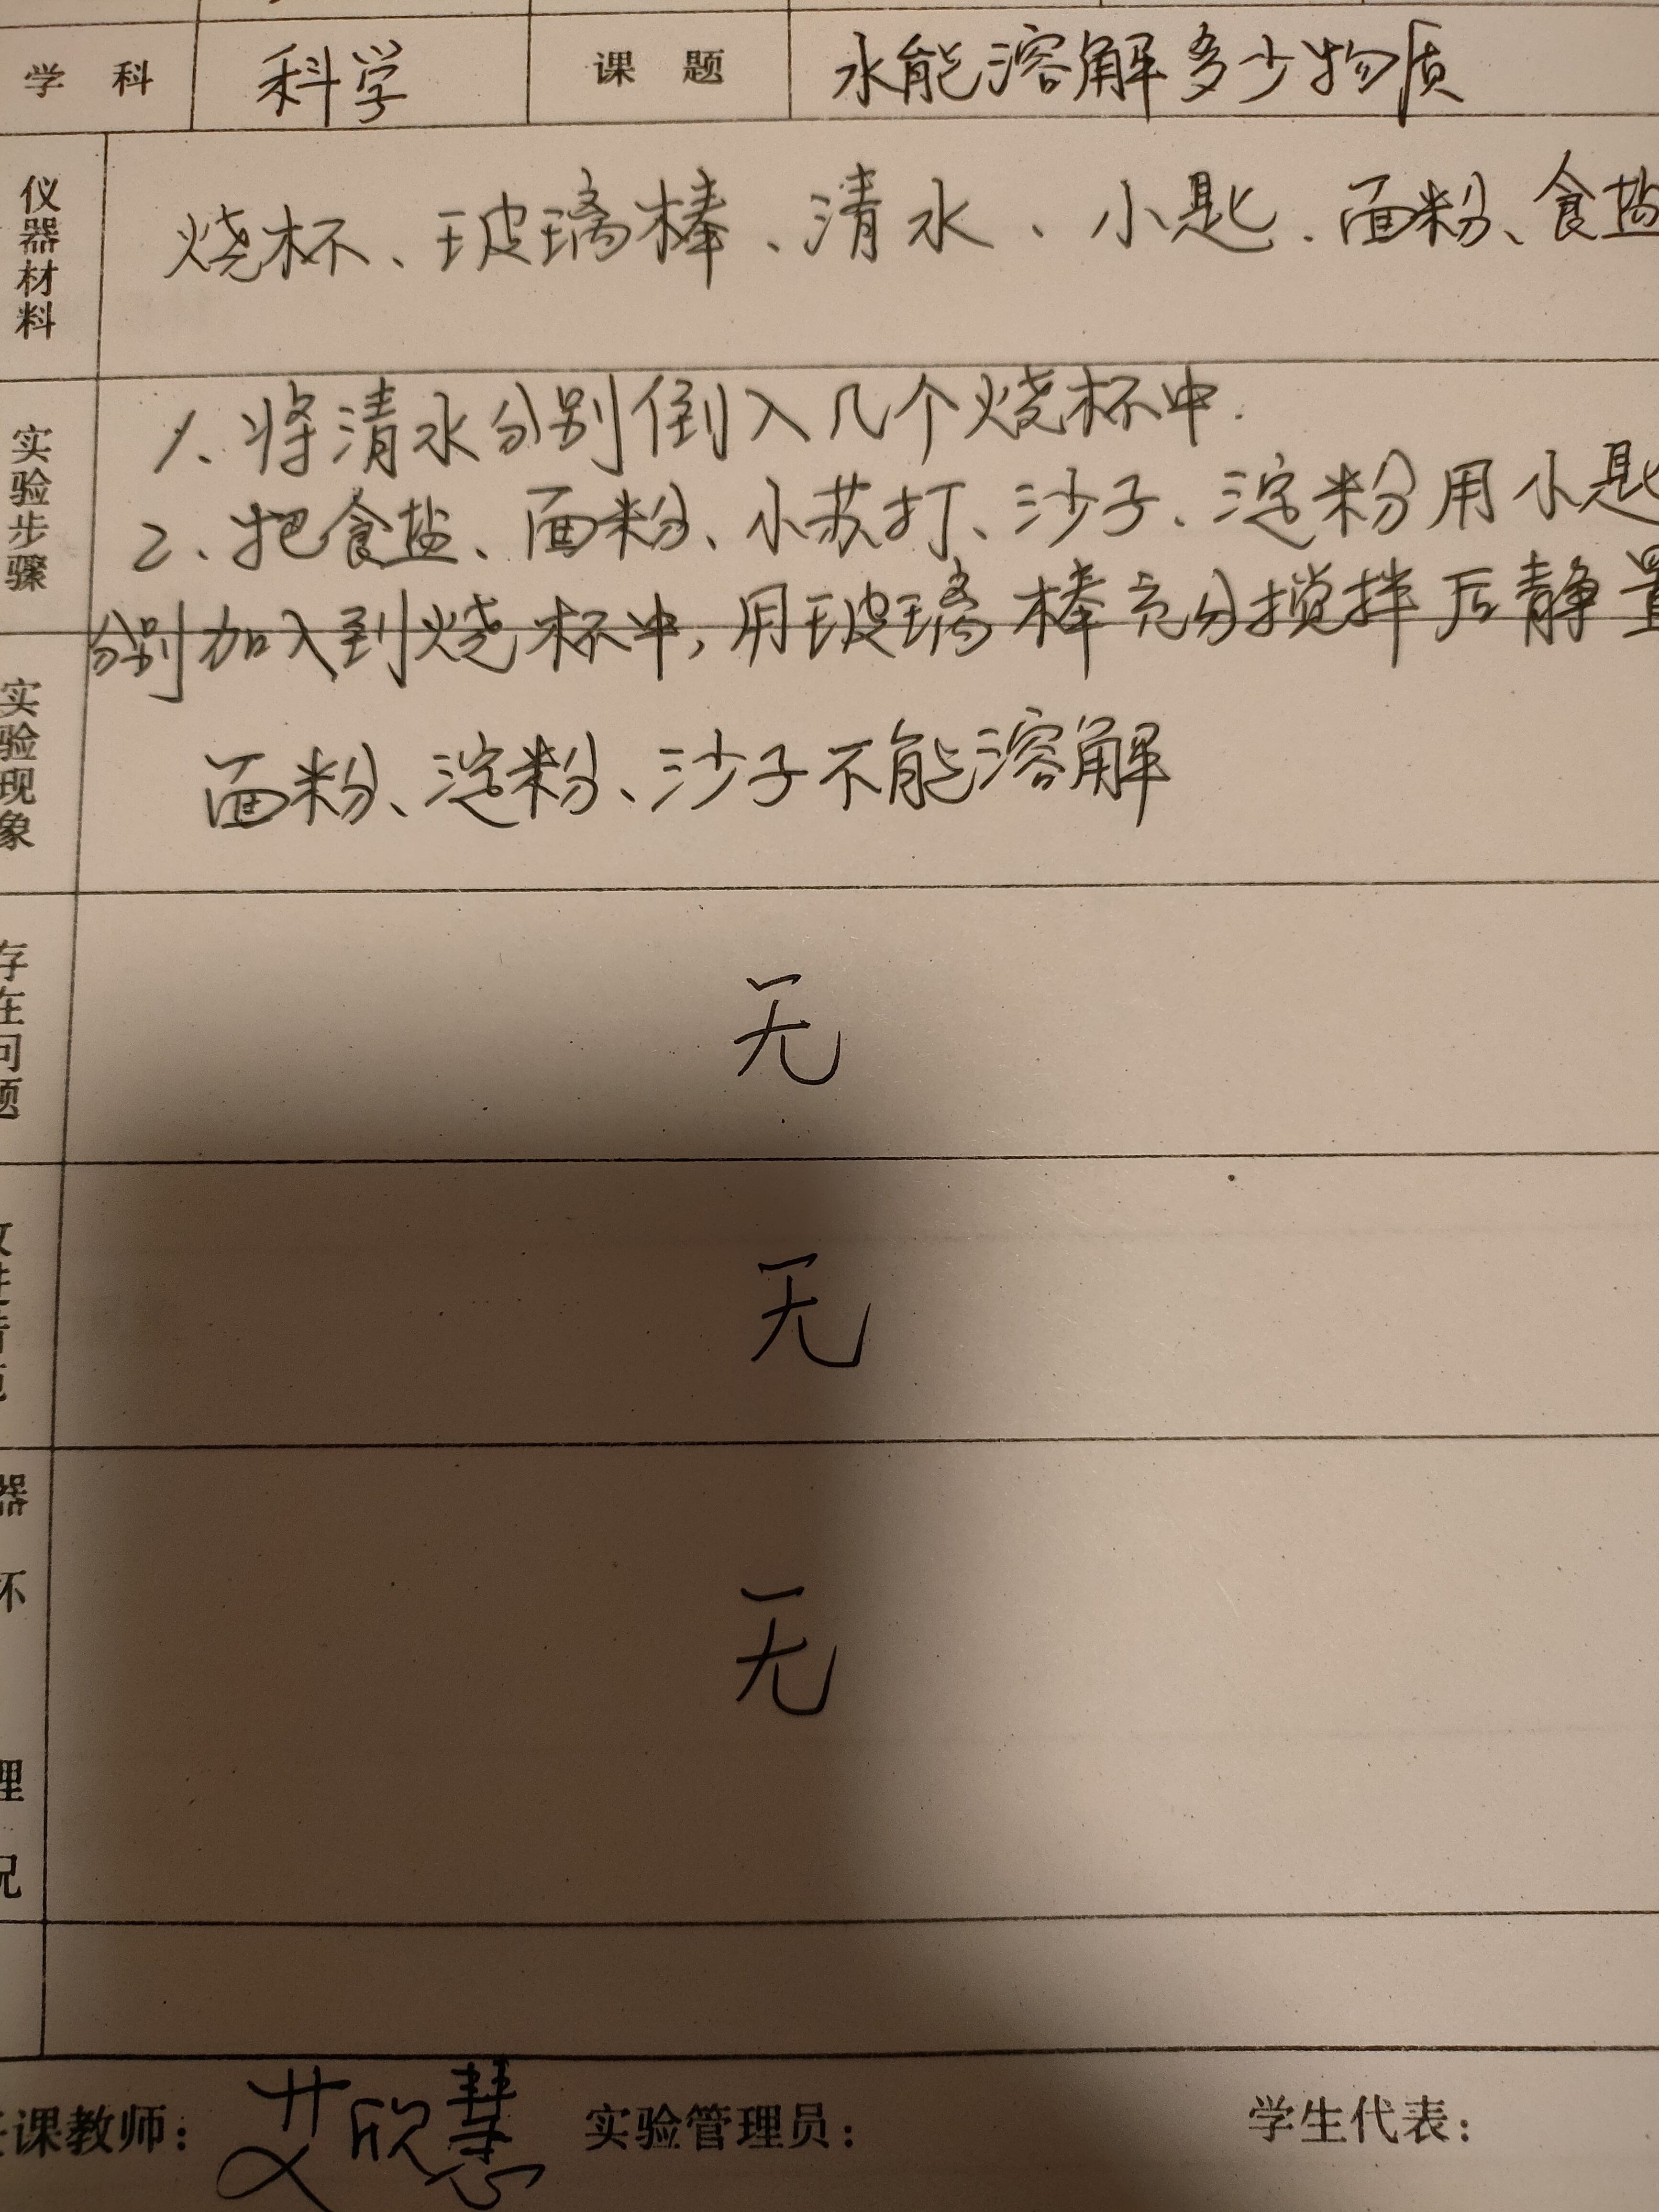 学科 科学 课题 水能溶解多少物质
仪器材料 烧杯、玻璃棒、清水、小匙、面粉、食盐
实验步骤 1、将清水分别倒入几个烧杯中.
2、把食盐、面粉、小苏打、沙子、淀粉用小匙
分别加入到烧杯中,用玻璃棒充分搅拌后静置
实验现象 面粉、淀粉、沙子不能溶解
存在问题 无
无
无
课教师: 艾欣慧 实验管理员: 学生代表: